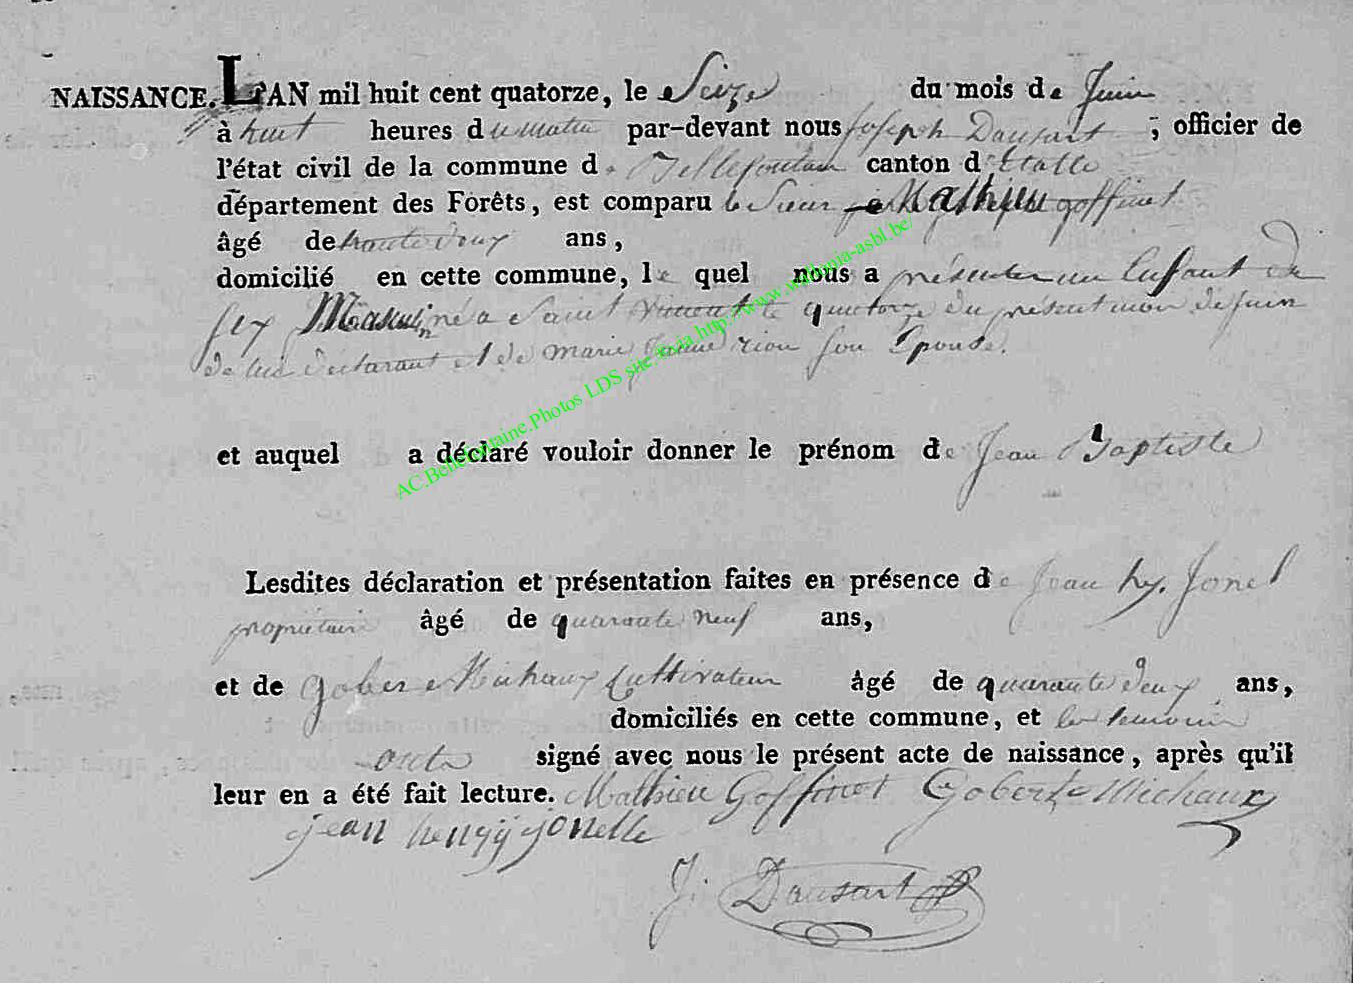 NAISSANCE. L'AN mil huit cent quatorze, le Seize du mois de Juin
à huit heures du matin par-devant nous Joseph Dausart, officier de
l'état civil de la commune de Bellefontain canton d'Etalle
département des Forêts, est comparu le Sieur Mathieu goffinet
âgé de trante deux ans,
domicilié en cette commune, le quel nous a présenter un Enfant du
sex Masculin né a Saint Vincent le quatorze du présent mois de juin
de lui déclarant et de marie jeanne rion son Epouse.
AC.Bellefontaine.Photos LDS site via http://www.wallonia-asbl.be/
et auquel a déclaré vouloir donner le prénom de Jean Baptiste
Lesdites déclaration et présentation faites en présence de Jean hy. Jonel
propriétaire âgé de quarante neuf ans,
et de gobert Michaux Cultivateur âgé de quarante deux ans,
domiciliés en cette commune, et les temoin
ont signé avec nous le présent acte de naissance, après qu'il
leur en a été fait lecture. Mathieu Goffinet Goberte Michaux
jean henry jonelle
J. Dausart